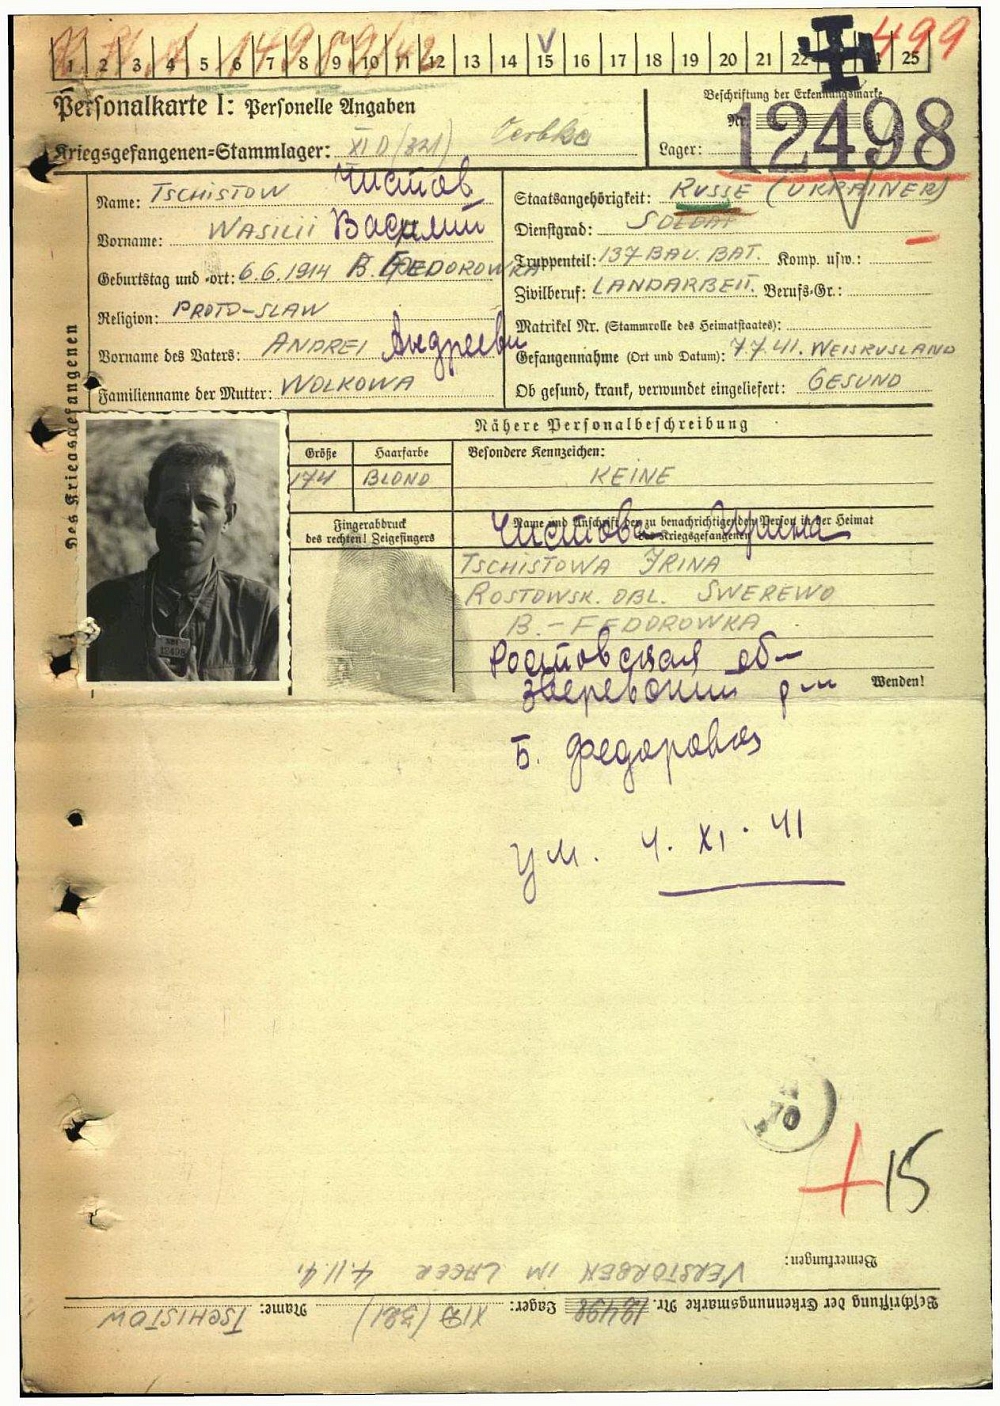 499
1 2 3 4 5 6 7 8 9 10 11 12 13 14 15 16 17 18 19 20 21 22 25
Personalkarte I: Personelle Angaben
Beschriftung der Erkennungsmarke
Nr. 12498
Kriegsgefangenen-Stammlager: XI D (321) Oerbke
Lager:
Des Kriegsgefangenen
Name: TSCHISTOW Чистов
Vorname: WASILII Василий
Geburtstag und -ort: 6.6.1914 B. FEDOROWKA
Religion: PROTO-SLAW
Vorname des Vaters: ANDREI Андрееви
Familienname der Mutter: WOLKOWA
Staatsangehörigkeit: RUSSE (UKRAINER)
Dienstgrad: SOLDAT
Truppenteil: 137 BAU. BAT. Komp. usw.:
Zivilberuf: LANDARBEIT. Berufs-Gr.:
Matrikel Nr. (Stammrolle des Heimatstaates):
Gefangennahme (Ort und Datum): 7.7.41. WEISRUSLAND
Ob gesund, krank, verwundet eingeliefert: GESUND
Nähere Personalbeschreibung
Größe Haarfarbe Besondere Kennzeichen:
174 BLOND KEINE
Fingerabdruck
des rechten! Zeigefingers
Name und Anschrift der zu benachrichtigenden Person in der Heimat
des Kriegsgefangenen
Чистова Ирина
TSCHISTOWA IRINA
ROSTOWSK. OBL. SWEREWO
B.-FEDOROWKA
Ростовская об-
Зверевский р-н
Wenden!
Б. Федоровка
ум. 4. XI. 41
12498
70
+ 15
Bemerkungen: VERSTORBEN IM LAGER 4.11.41
Beschriftung der Erkennungsmarke Nr. 12498 Lager: XI D (321) Name: TSCHISTOW